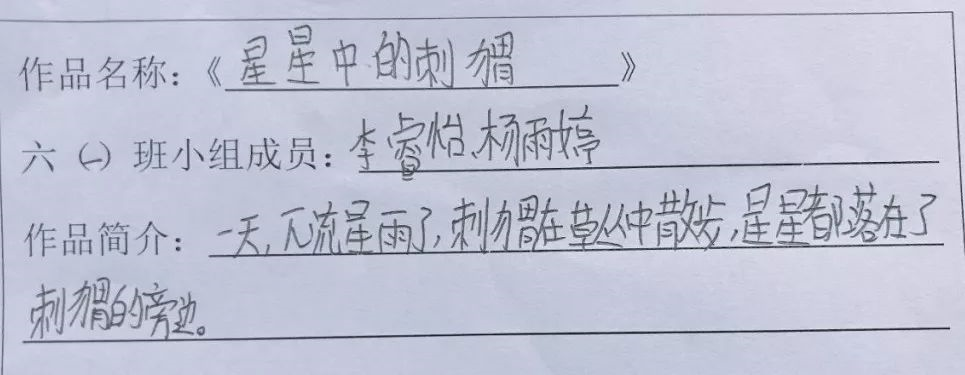 作品名称：《星星中的刺猬》
六（一）班小组成员：李睿怡、杨雨婷
作品简介：一天，下流星雨了，刺猬在草丛中散步，星星都落在了
刺猬的旁边。